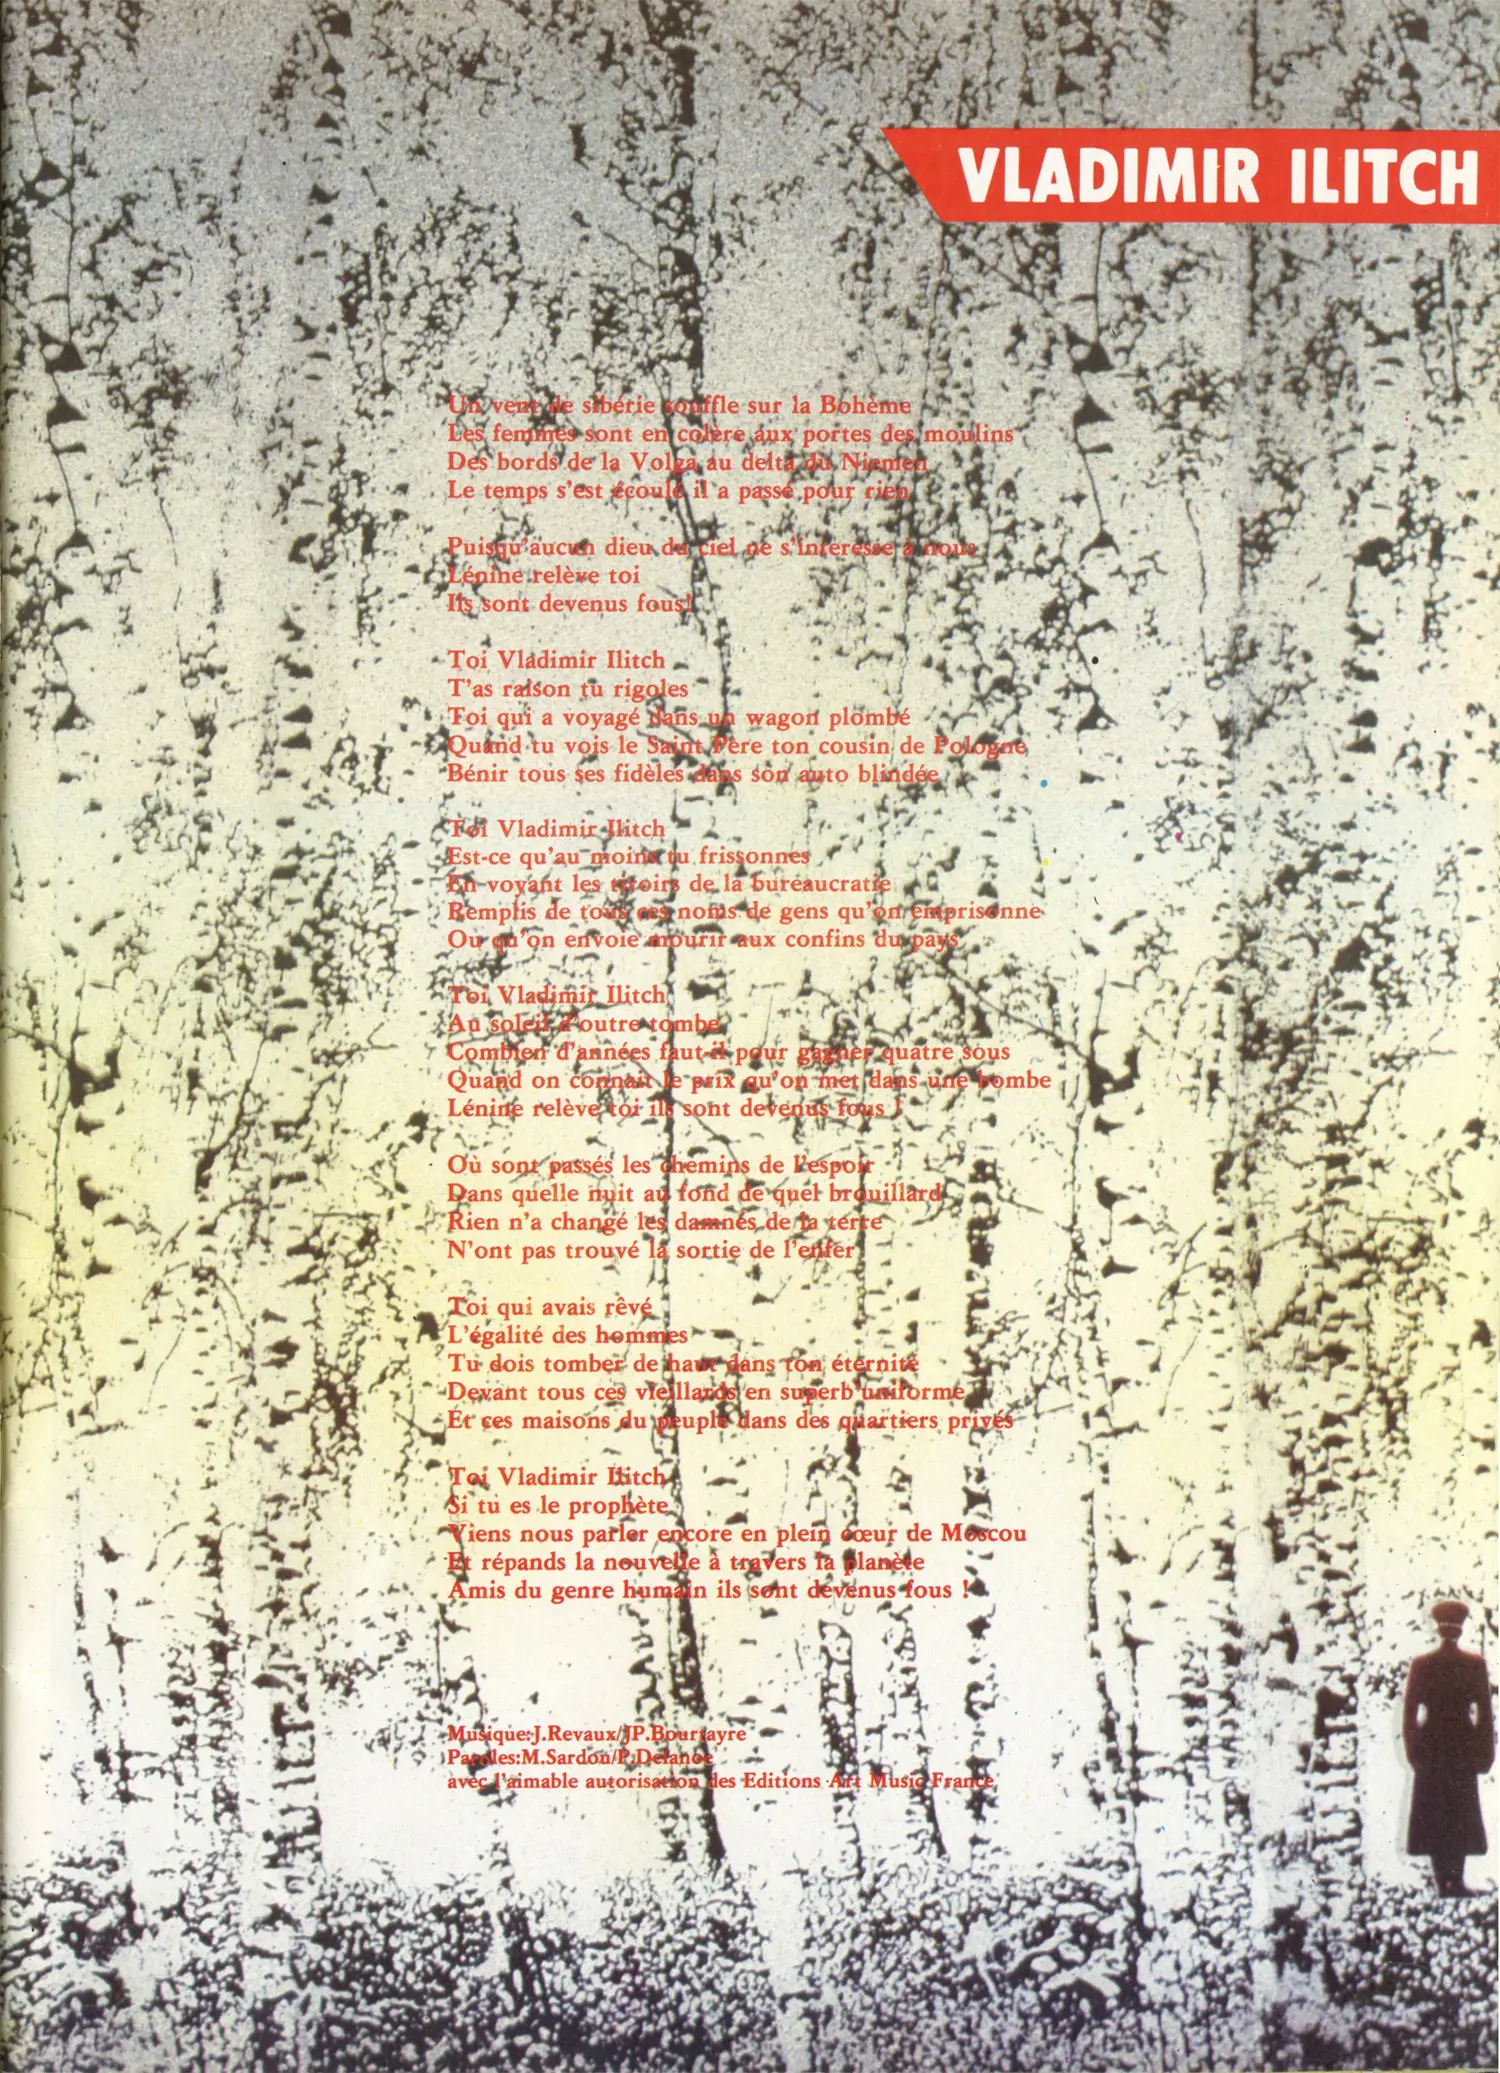 VLADIMIR ILITCH
Un vent de sibérie souffle sur la Bohème
Les femmes sont en colère aux portes des moulins
Des bords de la Volga au delta du Niemen
Le temps s'est écoulé il a passé pour rien
Puisqu'aucun dieu du ciel ne s'interesse à nous
Lénine relève toi
Ils sont devenus fous!
Toi Vladimir Ilitch
T'as raison tu rigoles
Toi qui a voyagé dans un wagon plombé
Quand tu vois le Saint Père ton cousin de Pologne
Bénir tous ses fidèles dans son auto blindée
Toi Vladimir Ilitch
Est-ce qu'au moins tu frissonnes
En voyant les tiroirs de la bureaucratie
Remplis de tous ces noms de gens qu'on emprisonne
Ou qu'on envoie mourir aux confins du pays
Toi Vladimir Ilitch
Au soleil d'outre tombe
Combien d'années faut-il pour gagner quatre sous
Quand on connait le prix qu'on met dans une bombe
Lénine relève toi ils sont devenus fous !
Où sont passés les chemins de l'espoir
Dans quelle nuit au fond de quel brouillard
Rien n'a changé les damnés de la terre
N'ont pas trouvé la sortie de l'enfer
Toi qui avais rêvé
L'égalité des hommes
Tu dois tomber de haut dans ton éternité
Devant tous ces vieillards en superb'uniforme
Et ces maisons du peuple dans des quartiers privés
Toi Vladimir Ilitch
Si tu es le prophète
Viens nous parler encore en plein cœur de Moscou
Et répands la nouvelle à travers la planète
Amis du genre humain ils sont devenus fous !
Musique:J.Revaux/JP.Bourtayre
Paroles:M.Sardou/P.Delanoe
avec l'aimable autorisation des Editions Art Music France